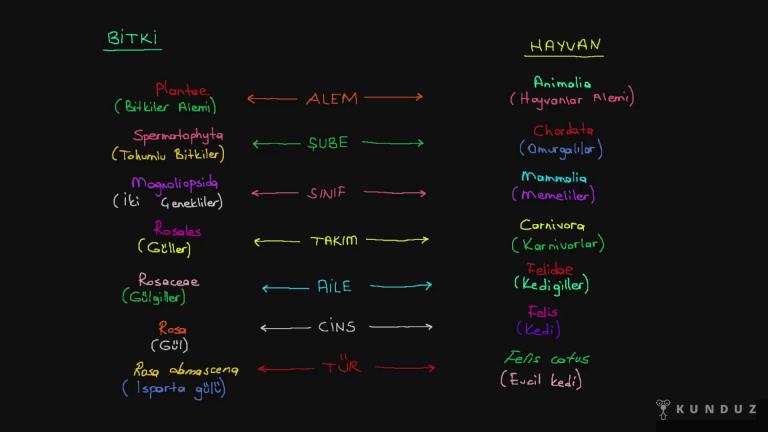 BİTKİ
HAYVAN
Plantae
(Bitkiler Alemi)
ALEM
Animalia
(Hayvanlar Alemi)
Spermatophyta
(Tohumlu Bitkiler)
ŞUBE
Chordata
(Omurgalılar)
Magnoliopsida
(İki Çenekliler)
SINIF
Mammalia
(Memeliler)
Rosales
(Güller)
TAKIM
Carnivora
(Karnivorlar)
Rosaceae
(Gülgiller)
AİLE
Felidae
(Kedigiller)
Rosa
(Gül)
CİNS
Felis
(Kedi)
Rosa damascena
(Isparta gülü)
TÜR
Felis catus
(Evcil kedi)
KUNDUZ